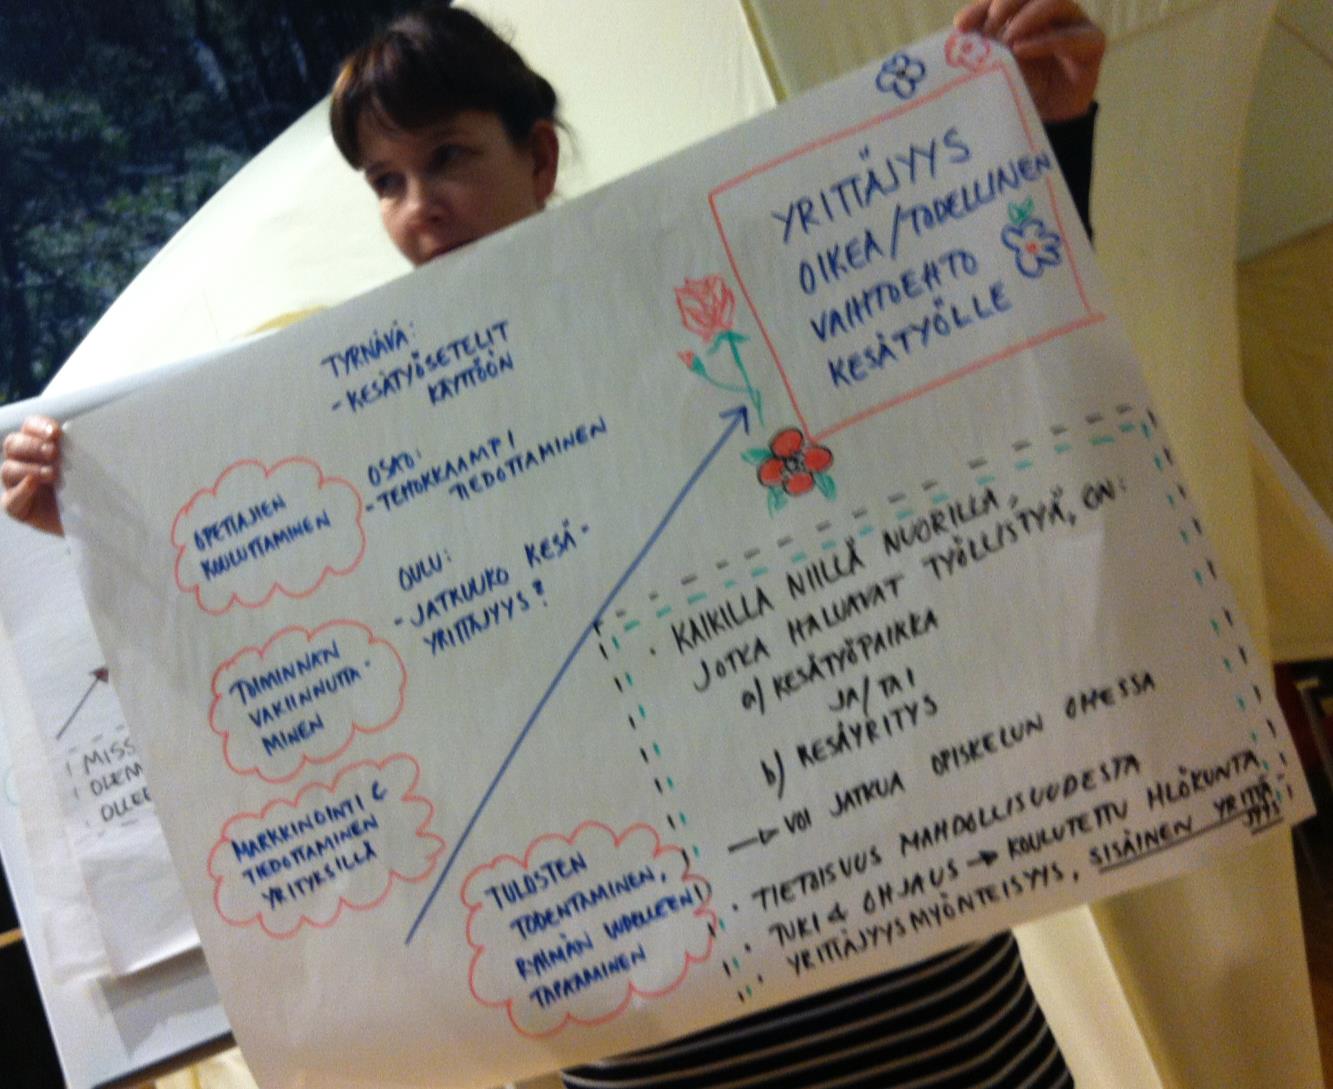 YRITTÄJYYS
OIKEA/TODELLINEN
VAIHTOEHTO
KESÄTYÖLLE
TYRNÄVÄ:
- KESÄTYÖSETELIT
KÄYTTÖÖN
OSAO:
- TEHOKKAAMPI
TIEDOTTAMINEN
OULU:
- JATKUUKO KESÄ-
YRITTÄJYYS?
OPETTAJIEN
KOULUTTAMINEN
TOIMINNAN
VAKIINNUTTA-
MINEN
MARKKINOINTI &
TIEDOTTAMINEN
YRITYKSILLÄ
TULOSTEN
TODENTAMINEN,
RYHMÄN UUDELLEEN
TAPAAMINEN
· KAIKILLA NIILLÄ NUORILLA,
JOTKA HALUAVAT TYÖLLISTYÄ, ON:
a) KESÄTYÖPAIKKA
JA/TAI
b) KESÄYRITYS
→ VOI JATKUA OPISKELUN OHESSA
· TIETOISUUS MAHDOLLISUUDESTA
· TUKI & OHJAUS → KOULUTETTU HLÖKUNTA,
· YRITTÄJYYSMYÖNTEISYYS, SISÄINEN YRITTÄ-
JYYS
MISS
OLEM
OLLEE